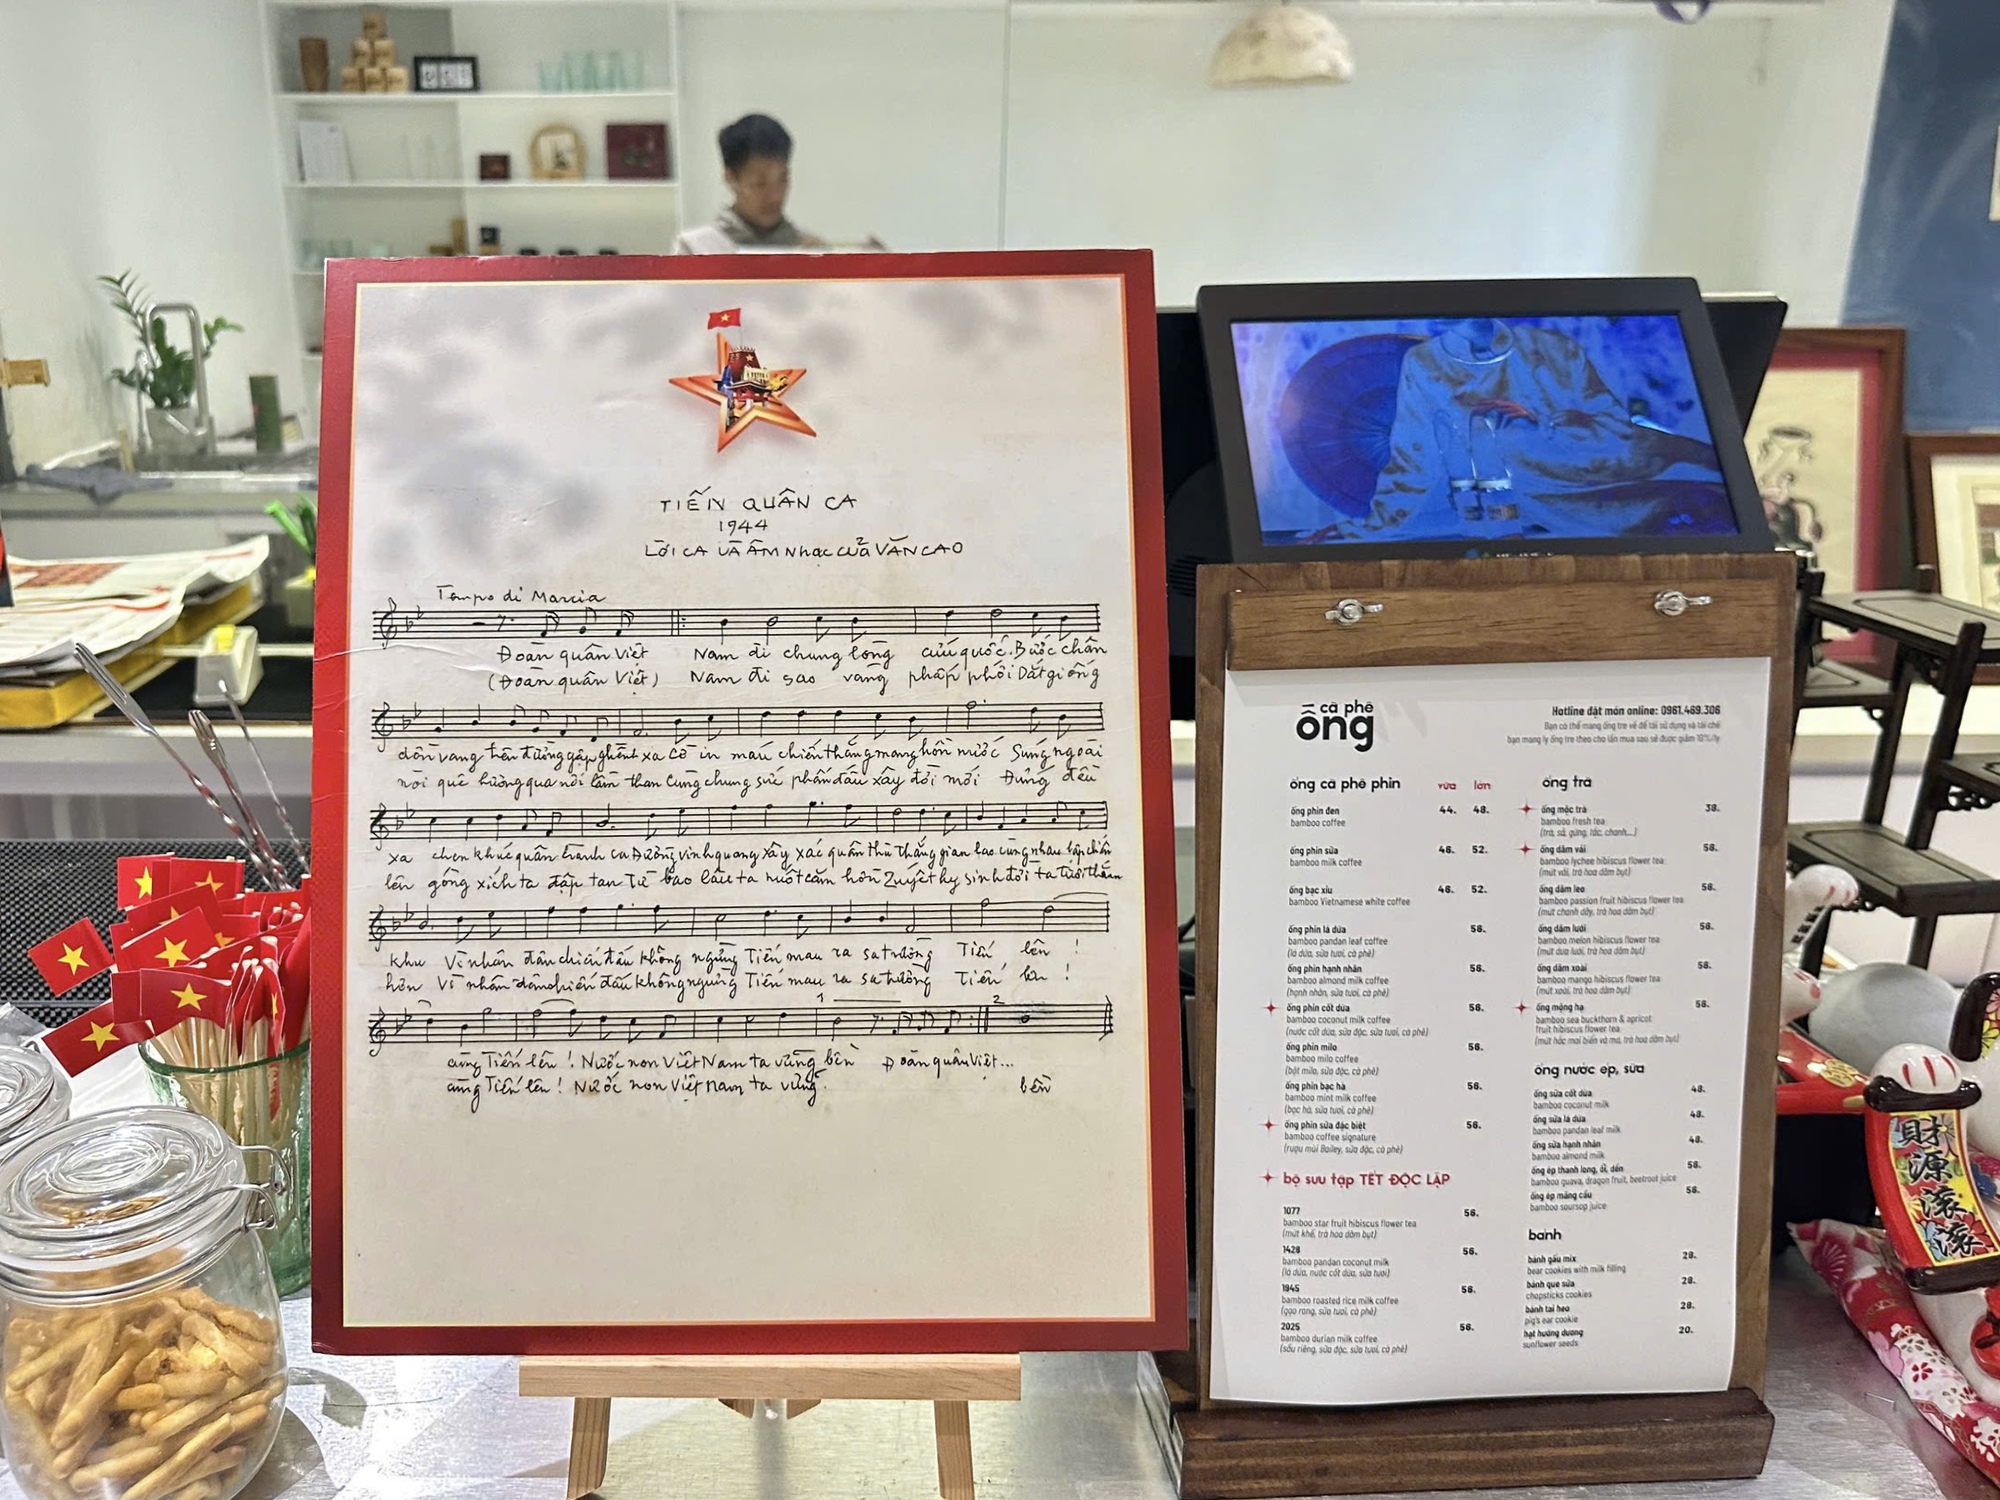 TIẾN QUÂN CA
1944
LỜI CA VÀ ÂM NHẠC CỦA VĂN CAO
Tempo di Marcia
Đoàn quân Việt Nam đi chung lòng cứu quốc. Bước chân
(Đoàn quân Việt) Nam đi sao vàng phấp phới Dắt giống
dồn vang trên đường gập ghềnh xa Cờ in máu chiến thắng mang hồn nước Súng ngoài
nòi quê hương qua nơi lầm than Cùng chung sức phấn đấu xây đời mới Đứng đều
xa chen khúc quân hành ca Đường vinh quang xây xác quân thù Thắng gian lao cùng nhau lập chiến
lên gông xích ta đập tan Từ bao lâu ta nuốt căm hờn Quyết hy sinh đời ta tươi thắm
khu Vì nhân dân chiến đấu không ngừng Tiến mau ra sa trường Tiến lên !
hơn Vì nhân dân chiến đấu không ngừng Tiến mau ra sa trường Tiến lên !
1 2
cùng Tiến lên ! Nước non Việt Nam ta vững bền Đoàn quân Việt...
cùng Tiến lên ! Nước non Việt Nam ta vững bền
cà phê
ống
Hotline đặt món online: 0961.469.306
Bạn có thể mang ống tre về để tái sử dụng và tái chế
bạn mang ly ống tre theo cho lần mua sau sẽ được giảm 10%/ly
ống cà phê phin vừa lớn
ống phin đen 44. 48.
bamboo coffee
ống phin sữa 46. 52.
bamboo milk coffee
ống bạc xỉu 46. 52.
bamboo Vietnamese white coffee
ống phin lá dứa 56.
bamboo pandan leaf coffee
(lá dứa, sữa đặc, cà phê)
ống phin hạnh nhân 56.
bamboo almond milk coffee
(hạnh nhân, sữa tươi, cà phê)
ống phin cốt dừa 56.
bamboo coconut milk coffee
(nước cốt dừa, sữa đặc, sữa tươi, cà phê)
ống phin milo 56.
bamboo milo coffee
(bột milo, sữa đặc, cà phê)
ống phin bạc hà 56.
bamboo mint milk coffee
(bạc hà, sữa tươi, cà phê)
ống phin sữa đặc biệt 56.
bamboo coffee signature
(rượu mùi Bailey, sữa đặc, cà phê)
bộ sưu tập TẾT ĐỘC LẬP
1077 56.
bamboo star fruit hibiscus flower tea
(mứt khế, trà hoa dâm bụt)
1428 56.
bamboo pandan coconut milk
(lá dứa, nước cốt dừa, sữa tươi)
1945 56.
bamboo roasted rice milk coffee
(gạo rang, sữa tươi, cà phê)
2025 56.
bamboo durian milk coffee
(sầu riêng, sữa đặc, sữa tươi, cà phê)
ống trà
ống mộc trà 38.
bamboo fresh tea
(trà, sả, gừng, tắc, chanh,...)
ống dâm vải 56.
bamboo lychee hibiscus flower tea
(mứt vải, trà hoa dâm bụt)
ống dâm leo 56.
bamboo passion fruit hibiscus flower tea
(mứt chanh dây, trà hoa dâm bụt)
ống dâm lưới 56.
bamboo melon hibiscus flower tea
(mứt dưa lưới, trà hoa dâm bụt)
ống dâm xoài 56.
bamboo mango hibiscus flower tea
(mứt xoài, trà hoa dâm bụt)
ống mộng hạ 56.
bamboo sea buckthorn & apricot
fruit hibiscus flower tea
(mứt hắc mai biển và mơ, trà hoa dâm bụt)
ống nước ép, sữa
ống sữa cốt dừa 48.
bamboo coconut milk
ống sữa lá dứa 48.
bamboo pandan leaf milk
ống sữa hạnh nhân 48.
bamboo almond milk
ống ép thanh long, ổi, dền 56.
bamboo guava, dragon fruit, beetroot juice
ống ép mãng cầu 56.
bamboo soursop juice
bánh
bánh gấu mix 28.
bear cookies with milk filling
bánh que sữa 28.
chopsticks cookies
bánh tai heo 28.
pig's ear cookie
hạt hướng dương 20.
sunflower seeds
財源滾滾